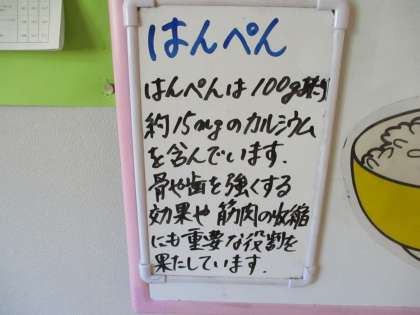 はんぺん
はんぺんは100g当り
約15mgのカルシウム
を含んでいます.
骨や歯を強くする
効果や筋肉の収縮
にも重要な役割を
果たしています.